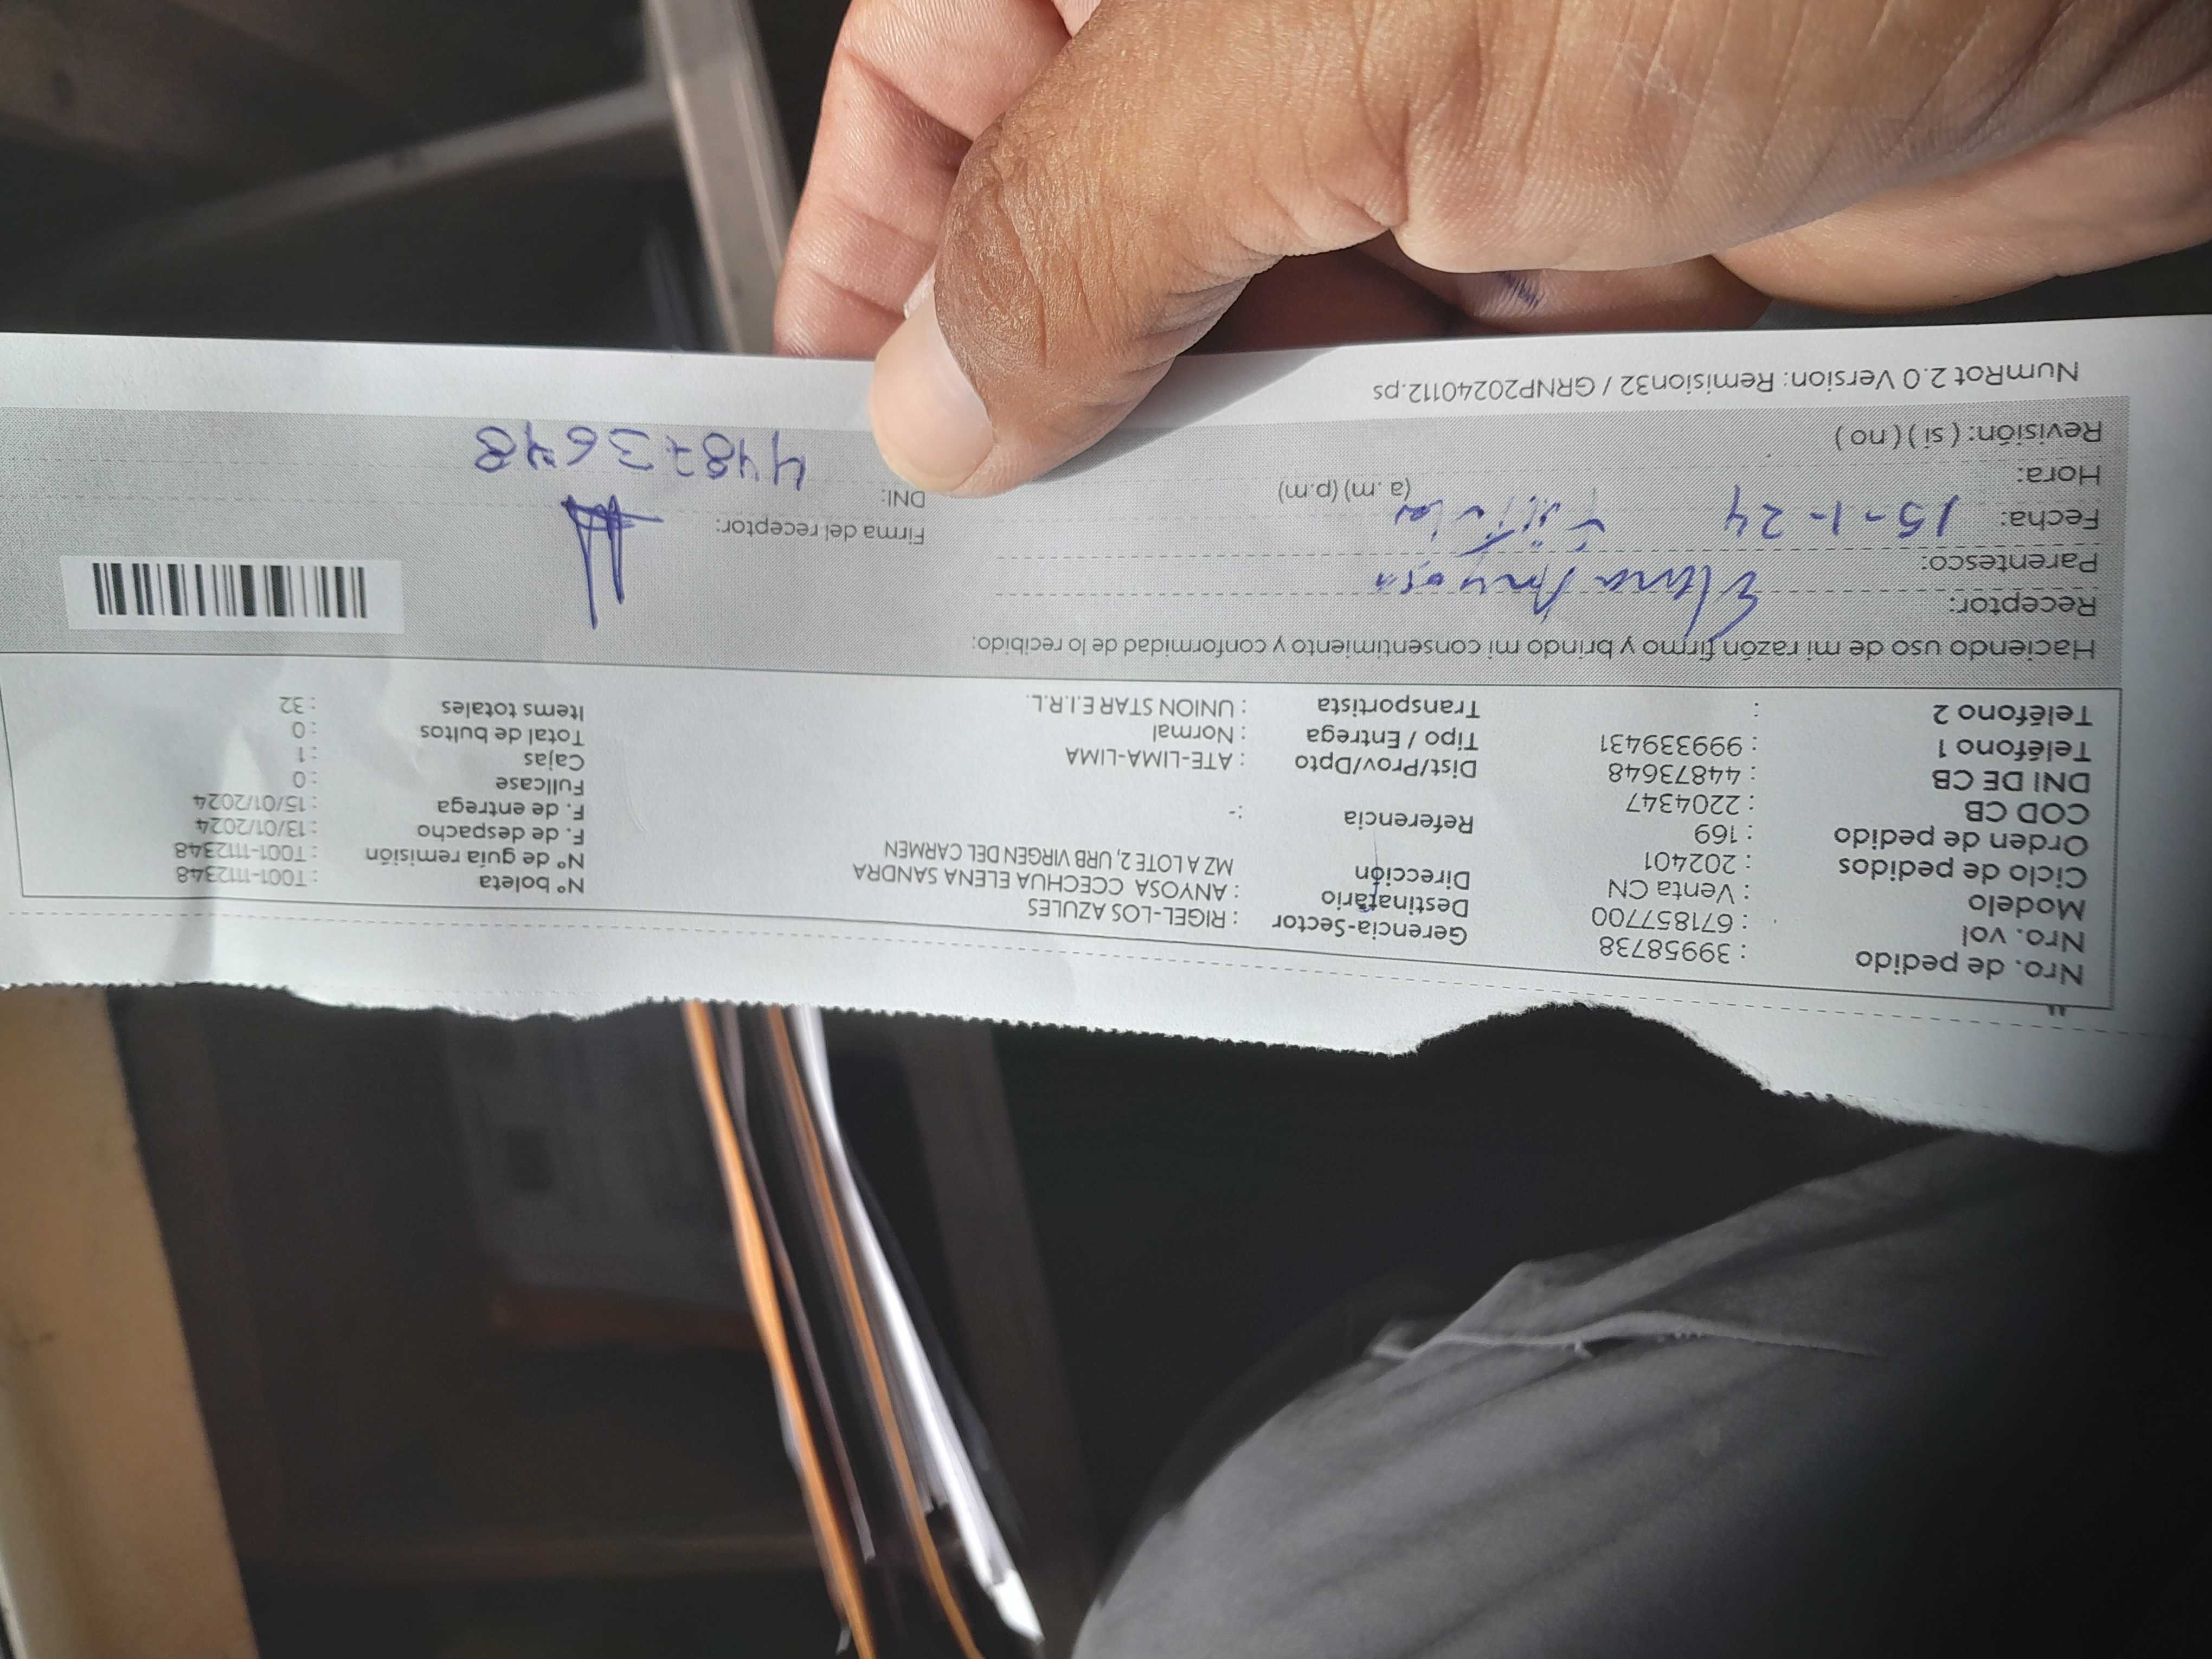 Nro. de pedido : 39958738 Gerencia-Sector : RIGEL-LOS AZULES Nº boleta : T001-1112348
Nro. vol : 671857700 Destinatario : ANYOSA CCECHUA ELENA SANDRA Nº de guía remisión : T001-1112348
Modelo : Venta CN Dirección MZ A LOTE 2, URB VIRGEN DEL CARMEN F. de despacho : 13/01/2024
Ciclo de pedidos : 202401 F. de entrega : 15/01/2024
Orden de pedido : 169 Referencia :- Fullcase : 0
COD CB : 2204347 Cajas : 1
DNI DE CB : 44873648 Dist/Prov/Dpto : ATE-LIMA-LIMA Total de bultos : 0
Teléfono 1 : 999339431 Tipo / Entrega : Normal Items totales : 32
Teléfono 2 : Transportista : UNION STAR E.I.R.L.
Haciendo uso de mi razón firmo y brindo mi consentimiento y conformidad de lo recibido:
Receptor: Elena Anyosa
Parentesco: Titular
Fecha: 15-1-24 Firma del receptor:
Hora: (a.m) (p.m) DNI: 44873648
Revisión: ( si ) ( no )
NumRot 2.0 Version: Remision32 / GRNP20240112.ps